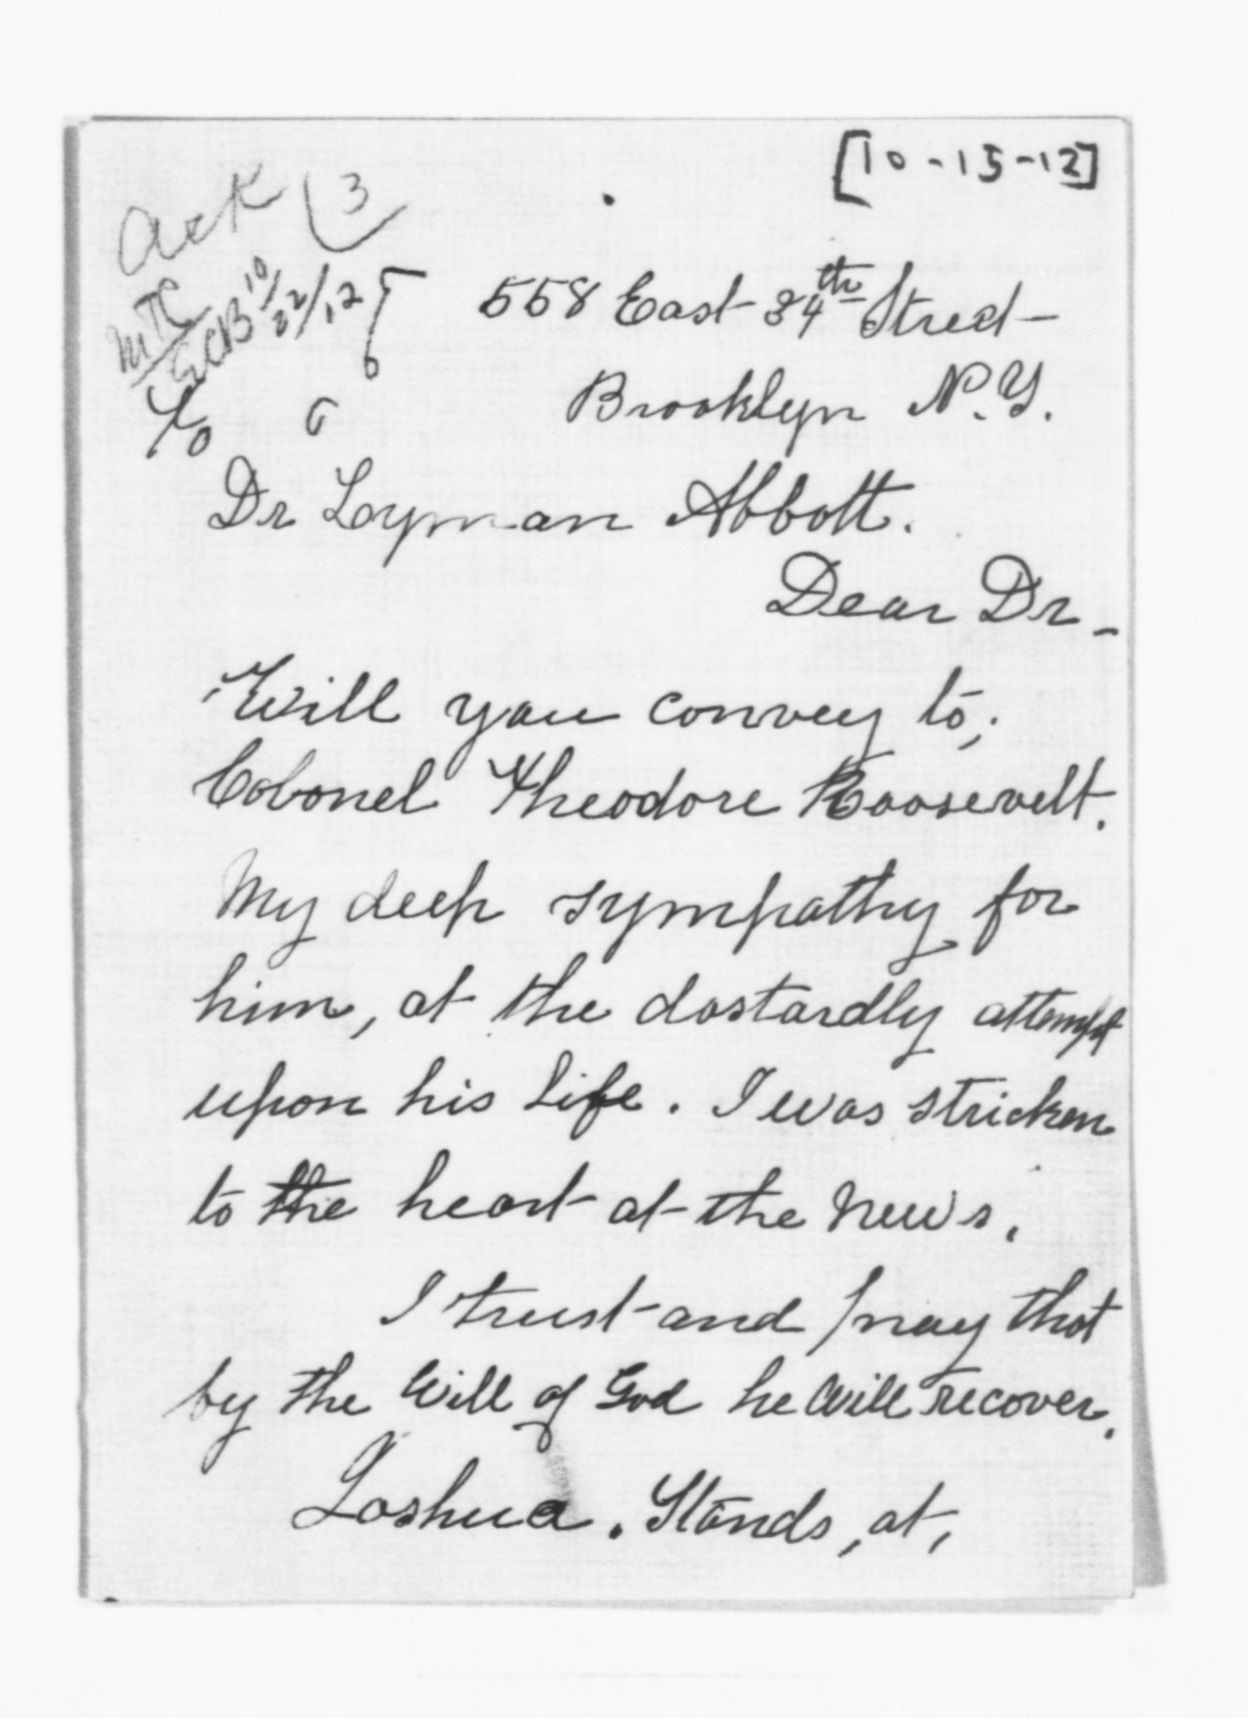 [10-15-12]
Ack
3
MTC
ECB 10/22/12
558 East 34th Street
Brooklyn N.Y.
Dr Lyman Abbott.
Dear Dr -
Will you convey to,
Colonel Theodore Roosevelt.
My deep sympathy for
him, at the dastardly attempt
upon his life. I was stricken
to the heart at the news.
I trust and pray that
by the Will of God he will recover.
Joshua. Stands, at,